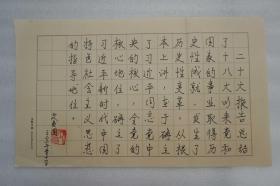 二十大报告总结
了十八大以来党和
国家的事业取得历
史性成就、发生了
历史性变革,从根
本上讲,在于确立
了习近平同志党中
央的核心、全党的
核心地位,确立了
习近平新时代中国
特色社会主义思想
的指导地位。